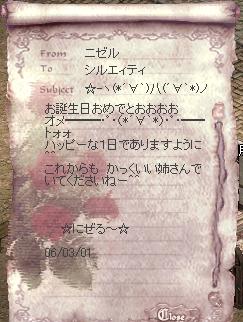 From ニゼル
To シルエィティ
Subject ☆ーヽ(*´∀`)八(´∀`*)ノ
お誕生日おめでとおおおお
オメ━━━━・゜・(*´∀`*)・゜・━━━━
トォォ
ハッピーな1日でありますように
^^
これからも かっくいい姉さんで
いてくださいねー^^
☆にぜる～☆
06/03/01
Close